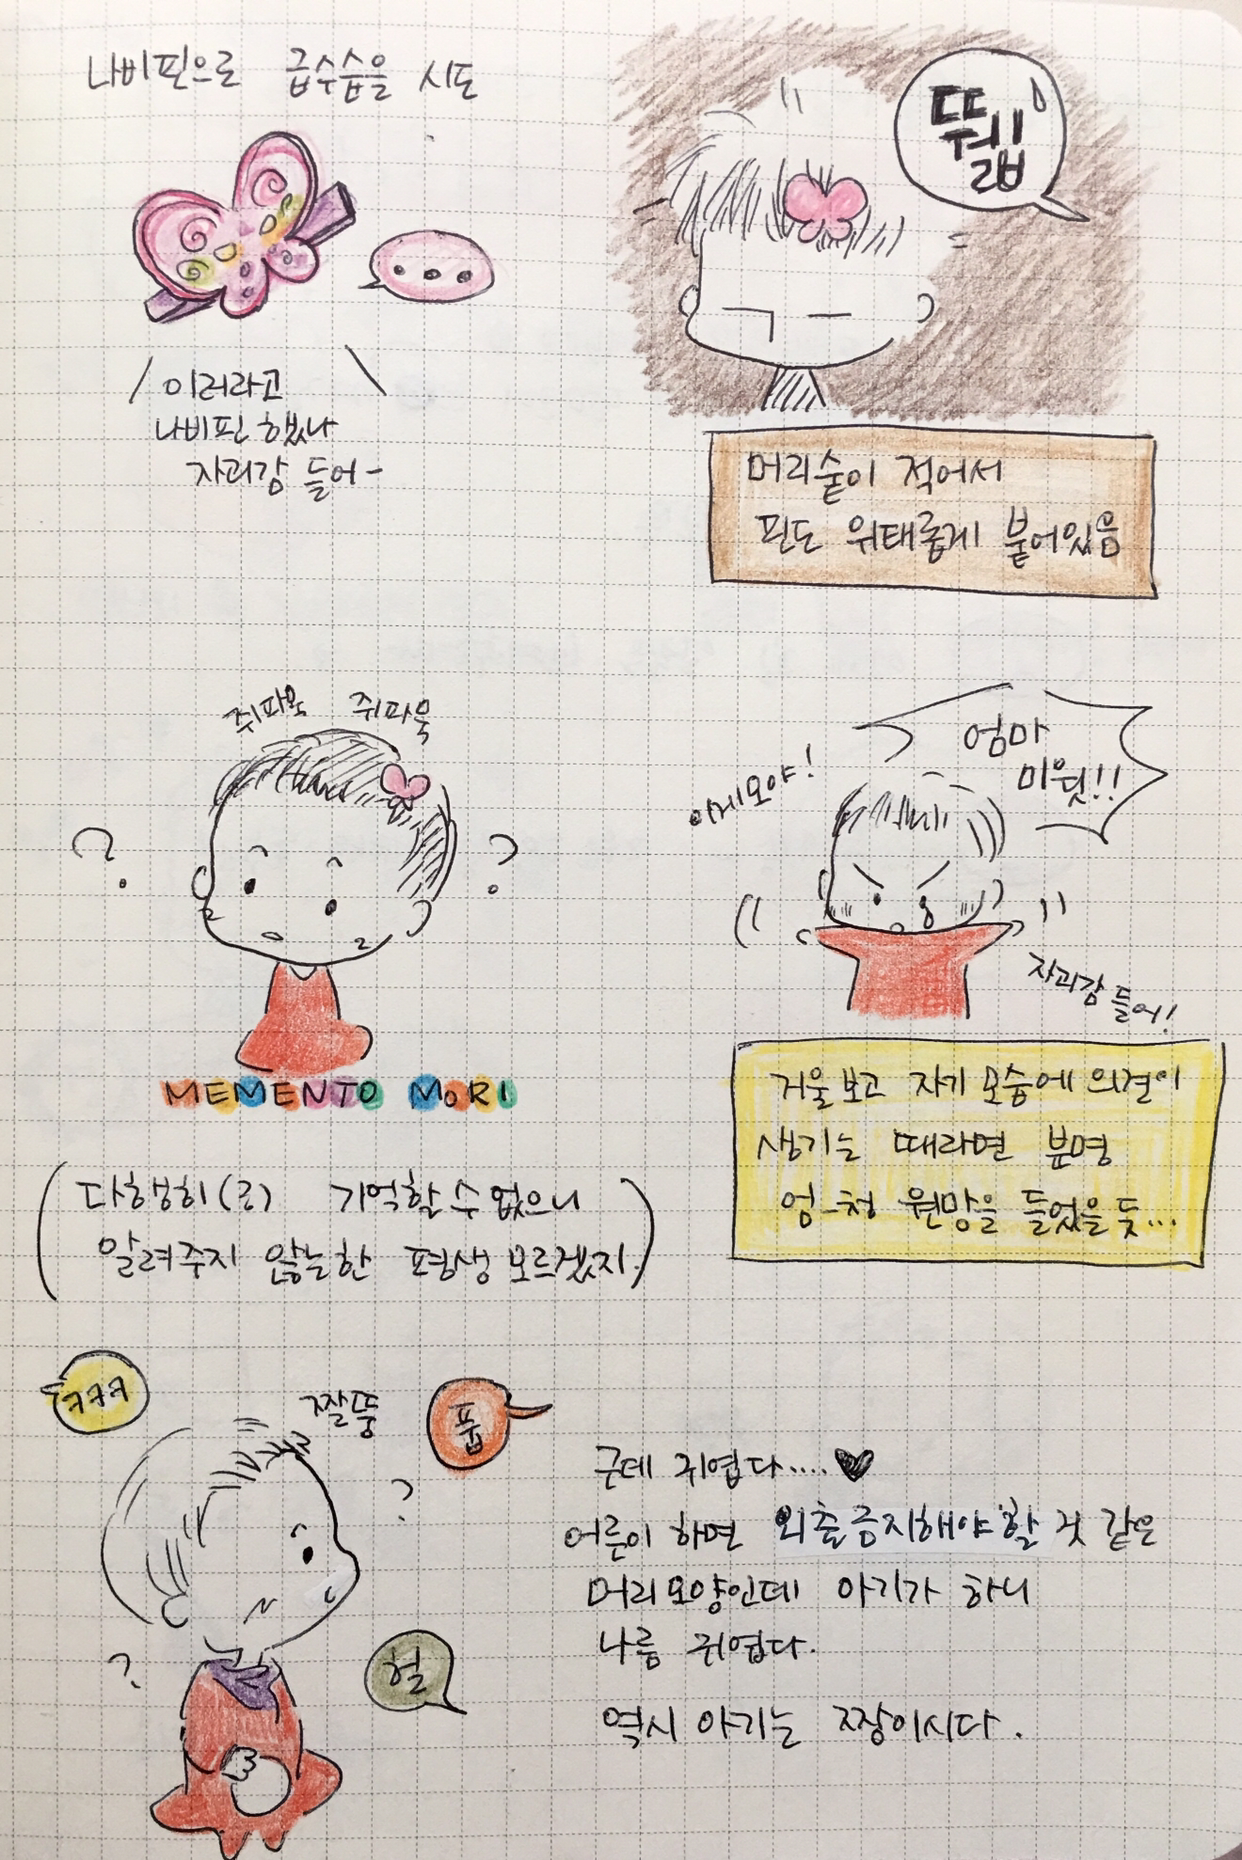 나비핀으로 급수습을 시도
뚜웳
...
이러라고
나비핀 했나
자괴감 들어-
머리숱이 적어서
핀도 위태롭게 붙어있음
쥐파옥 쥐파묵
? ?
엄마
미웟!!
이게모야!
자괴감 들어!
MEMENTO MORI
거울보고 자기 모습에 의견이
생기는 때라면 분명
엄-청 원망을 들었을듯...
(다행히(?) 기억할 수 없으니
알려주지 않는한 평생 모르겠지.)
ㅋㅋㅋ
짤뚱
풉
?
?
헐
근데 귀엽다....♥
어른이 하면 외출금지해야 할 것 같은
머리모양인데 아기가 하니
나름 귀엽다.
역시 아기는 짱이시다.